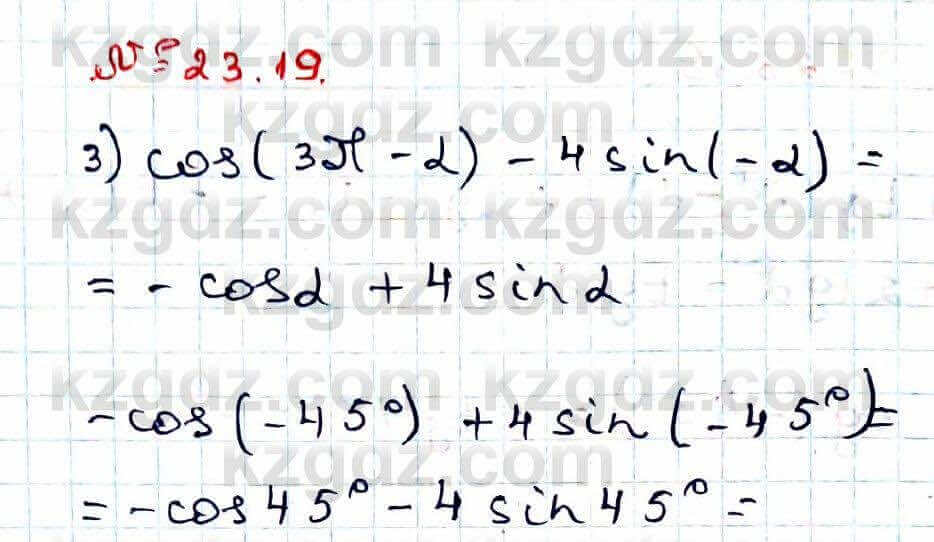 № 23.19.
3) cos(3π - α) - 4 sin(-α) =
= - cosα + 4 sin α
-cos(-45°) + 4 sin(-45°) =
= -cos45° - 4 sin45° =
kzgdz.com kzgdz.com kzgdz.com
kzgdz.com
kzgdz.com kzgdz.com kzgdz.com
kzgdz.com
kzgdz.com kzgdz.com kzgdz.com
kzgdz.com